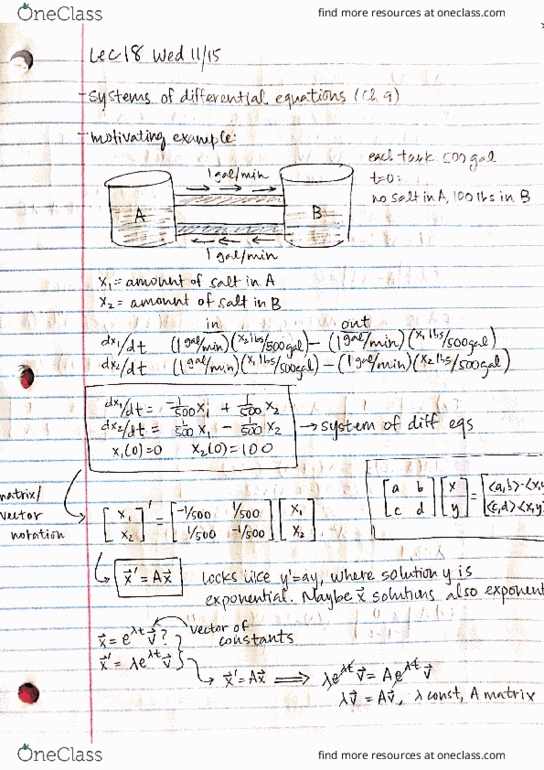 OneClass
find more resources at oneclass.com
Lec 18 Wed 11/15
- systems of differential equations (Ch 9)
- motivating example:
each tank 500 gal
t=0:
no salt in A, 100 lbs in B
1 gal/min
A
B
1 gal/min
x₁ = amount of salt in A
x₂ = amount of salt in B
in out
dx₁/dt (1 gal/min)(x₂ lbs/500gal) - (1 gal/min)(x₁ lbs/500gal)
dx₂/dt (1 gal/min)(x₁ lbs/500gal) - (1 gal/min)(x₂ lbs/500gal)
dx₁/dt = -1/500 x₁ + 1/500 x₂
dx₂/dt = 1/500 x₁ - 1/500 x₂
x₁(0)=0 x₂(0)=100
→ system of diff eqs
matrix/
vector
notation
[x₁ x₂]' = [-1/500 1/500; 1/500 -1/500] [x₁ x₂]
[a b; c d] [x y] = [<a,b>·<x,y <c,d>·<x,y>
x⃗' = Ax⃗
looks like y'=ay, where solution y is
exponential. Maybe x⃗ solutions also exponent
x⃗ = e^λt v⃗? vector of
constants
x⃗' = λe^λt v⃗
→ x⃗' = Ax⃗ ⟹ λe^λt v⃗ = Ae^λt v⃗
λv⃗ = Av⃗, λ const, A matrix
OneClass
find more resources at oneclass.com